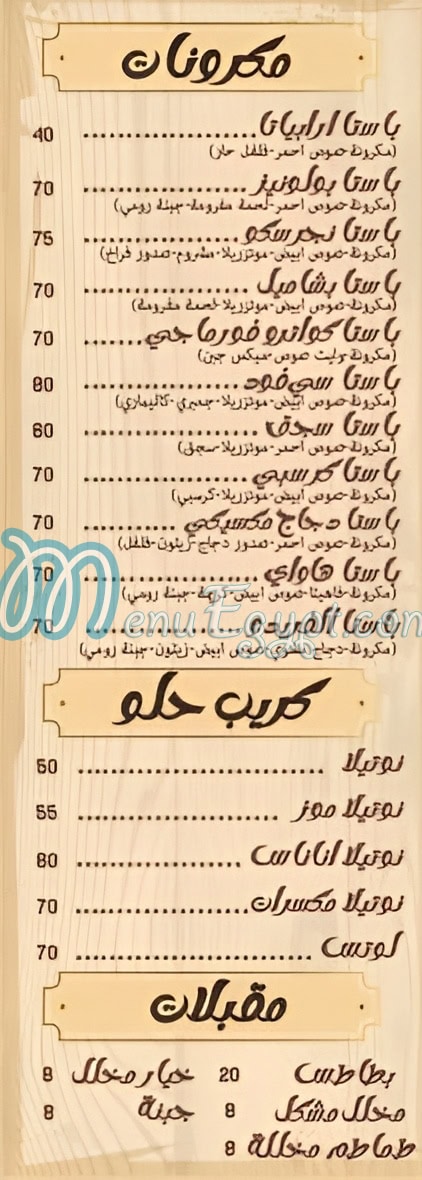 مكرونات
باستا ارابياتا 40
(مكرونة-صوص احمر-فلفل حار)
باستا بولونيز 70
(مكرونة-صوص احمر-لحمة مفرومة-جبنة رومي)
باستا نجرسكو 75
(مكرونة-صوص ابيض-موتزريلا-مشروم-صدور فراخ)
باستا بشاميل 70
(مكرونة-صوص ابيض-موتزريلا-لحمة مفرومة)
باستا كواترو فورماجي 70
(مكرونة-وايت صوص-ميكس جبن)
باستا سي فود 80
(مكرونة-صوص ابيض-موتزريلا-جمبري-كاليماري)
باستا سجق 60
(مكرونة-صوص احمر-موتزريلا-سجق)
باستا كرسبي 70
(مكرونة-صوص ابيض-موتزريلا-كرسبي)
باستا دجاج مكسيكي 70
(مكرونة-صوص احمر-صدور دجاج-زيتون-فلفل)
باستا هاواي 70
(مكرونة-فاهيتا-صوص ابيض-كريمة-جبنة رومي)
باستا ألفريدو 70
(مكرونة-دجاج مشوي-صوص ابيض-زيتون-جبنة رومي)
MenuEgypt.com
كريب حلو
نوتيلا 50
نوتيلا موز 55
نوتيلا اناناس 80
نوتيلا مكسرات 70
لوتس 70
مقبلات
بطاطس 20 خيار مخلل 8
مخلل مشكل 8 جبنة 8
طماطم مخللة 8